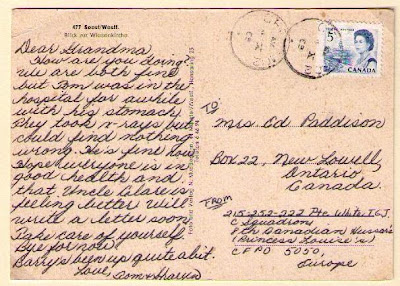 477 Soest/Westf.
Blick zur Wiesenkirche
Dear Grandma,
How are you doing?
We are both fine
but Tom was in the
hospital for awhile
with his stomach.
They took x-rays but
could find nothing
wrong. He is fine now.
Hope everyone is in
good health and
that Uncle Clare is
feeling better will
write a letter soon
Take care of yourself
Bye for now
Barry's been up quite a bit.
Love, Tom &
5
CANADA
TO
Mrs Ed Paddison
Box 22, New Lowell,
Ontario,
Canada.
FROM
215-252-222 Pte. White T.G.J.
C Squadron
8th Canadian Hussars
(Princess Louise's)
CFPO 5050,
Europe